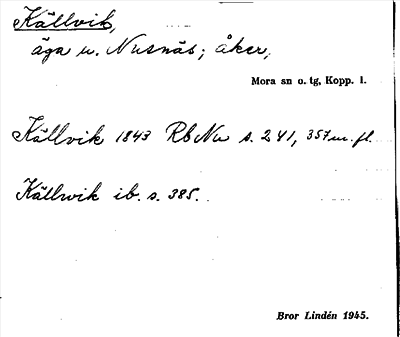 Källvik,
äga u. Nusnäs; åker,
Mora sn o. tg, Kopp. l.
Källvik 1843 Rb Nu s. 241, 357 m. fl.
Källwik ib. s. 385.
Bror Lindén 1945.